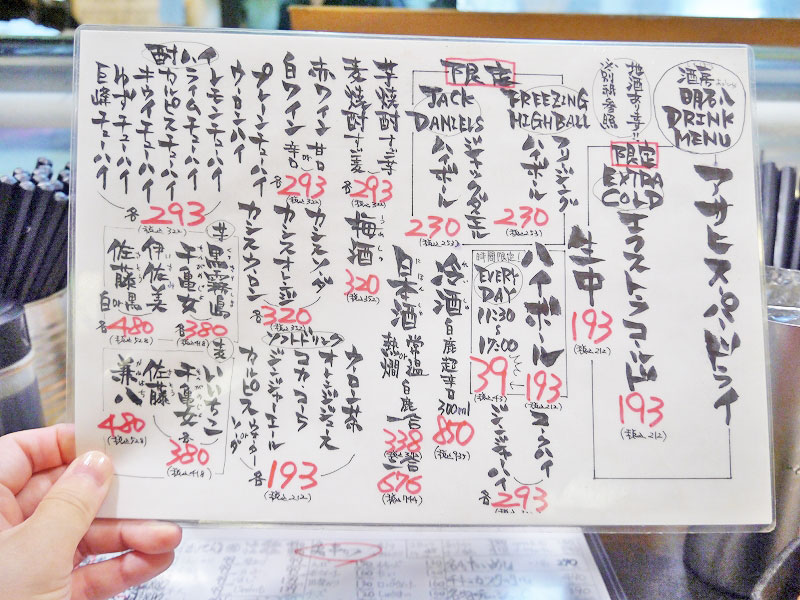 酒房
明石八
DRINK
MENU
地酒あり〼!!
別紙参照
アサヒスーパードライ
限定
EXTRA
COLD
エクストラコールド
193
(税込212)
生中
193
(税込212)
限定
FREEZING
HIGHBALL
フリージング
ハイボール
230
(税込253)
JACK
DANIELS
ジャックダニエル
ハイボール
230
(税込253)
ハイボール
193
(税込212)
時間限定!
EVERY
DAY
11:30
〜
17:00
39
(税込43)
コークハイ
ジンジャーハイ
各293
冷酒
白鹿超辛口
300ml
850
(税込935)
日本酒
常温
or
熱燗
白鹿
一合
338
二合
676
(税込744)
芋焼酎
麦焼酎
293
(税込322)
赤ワイン 甘口
白ワイン 辛口
293
(税込322)
梅酒
320
(税込352)
カシスソーダ
カシスオレンジ
カシスウーロン
各320
(税込352)
ソフトドリンク
ウーロン茶
オレンジジュース
コカ・コーラ
ジンジャーエール
カルピス ウォーター
or
ソーダ
各193
(税込212)
酎ハイ
プレーンチューハイ
ウーロンハイ
レモンチューハイ
ライムチューハイ
カルピスチューハイ
キウイチューハイ
ゆずチューハイ
巨峰チューハイ
各293
(税込322)
芋
黒霧島
千亀女
各380
(税込418)
伊佐美
佐藤 黒
or
白
各480
(税込528)
麦
いいちこ
千亀女
各380
(税込418)
佐藤
兼八
480
(税込528)